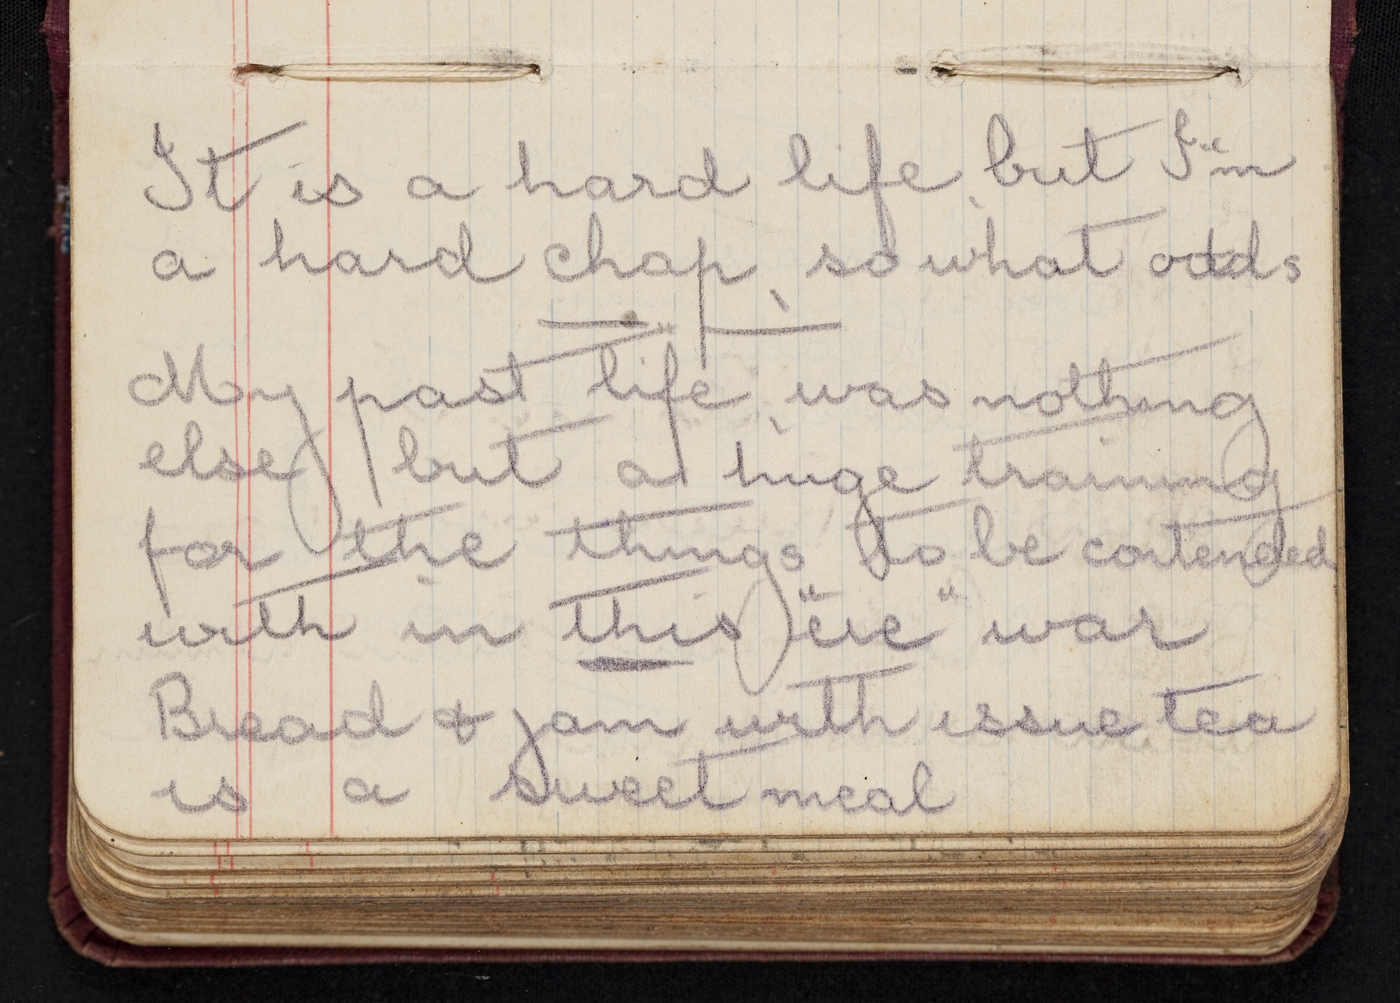 It is a hard life, but I'm
a hard chap, so what odds
My past life, was nothing
else, but a huge training
for the things to be contended
with in this "eve" war
Bread & jam with issue tea
is a sweet meal